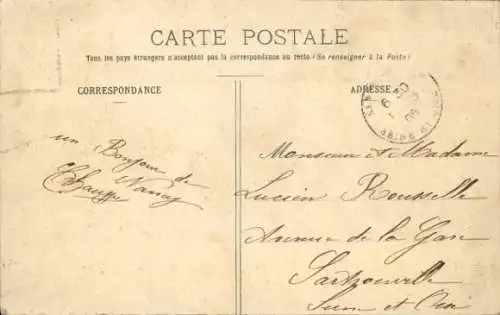 CARTE POSTALE
Tous les pays étrangers n'acceptent pas la correspondance au recto (Se renseigner à la Poste)
CORRESPONDANCE
ADRESSE
6 30
un Bonjour de
Nancy
Monsieur et Madame
Lucien Rousselle
Avenue de la Gare
Sartrouville
Seine et Oise